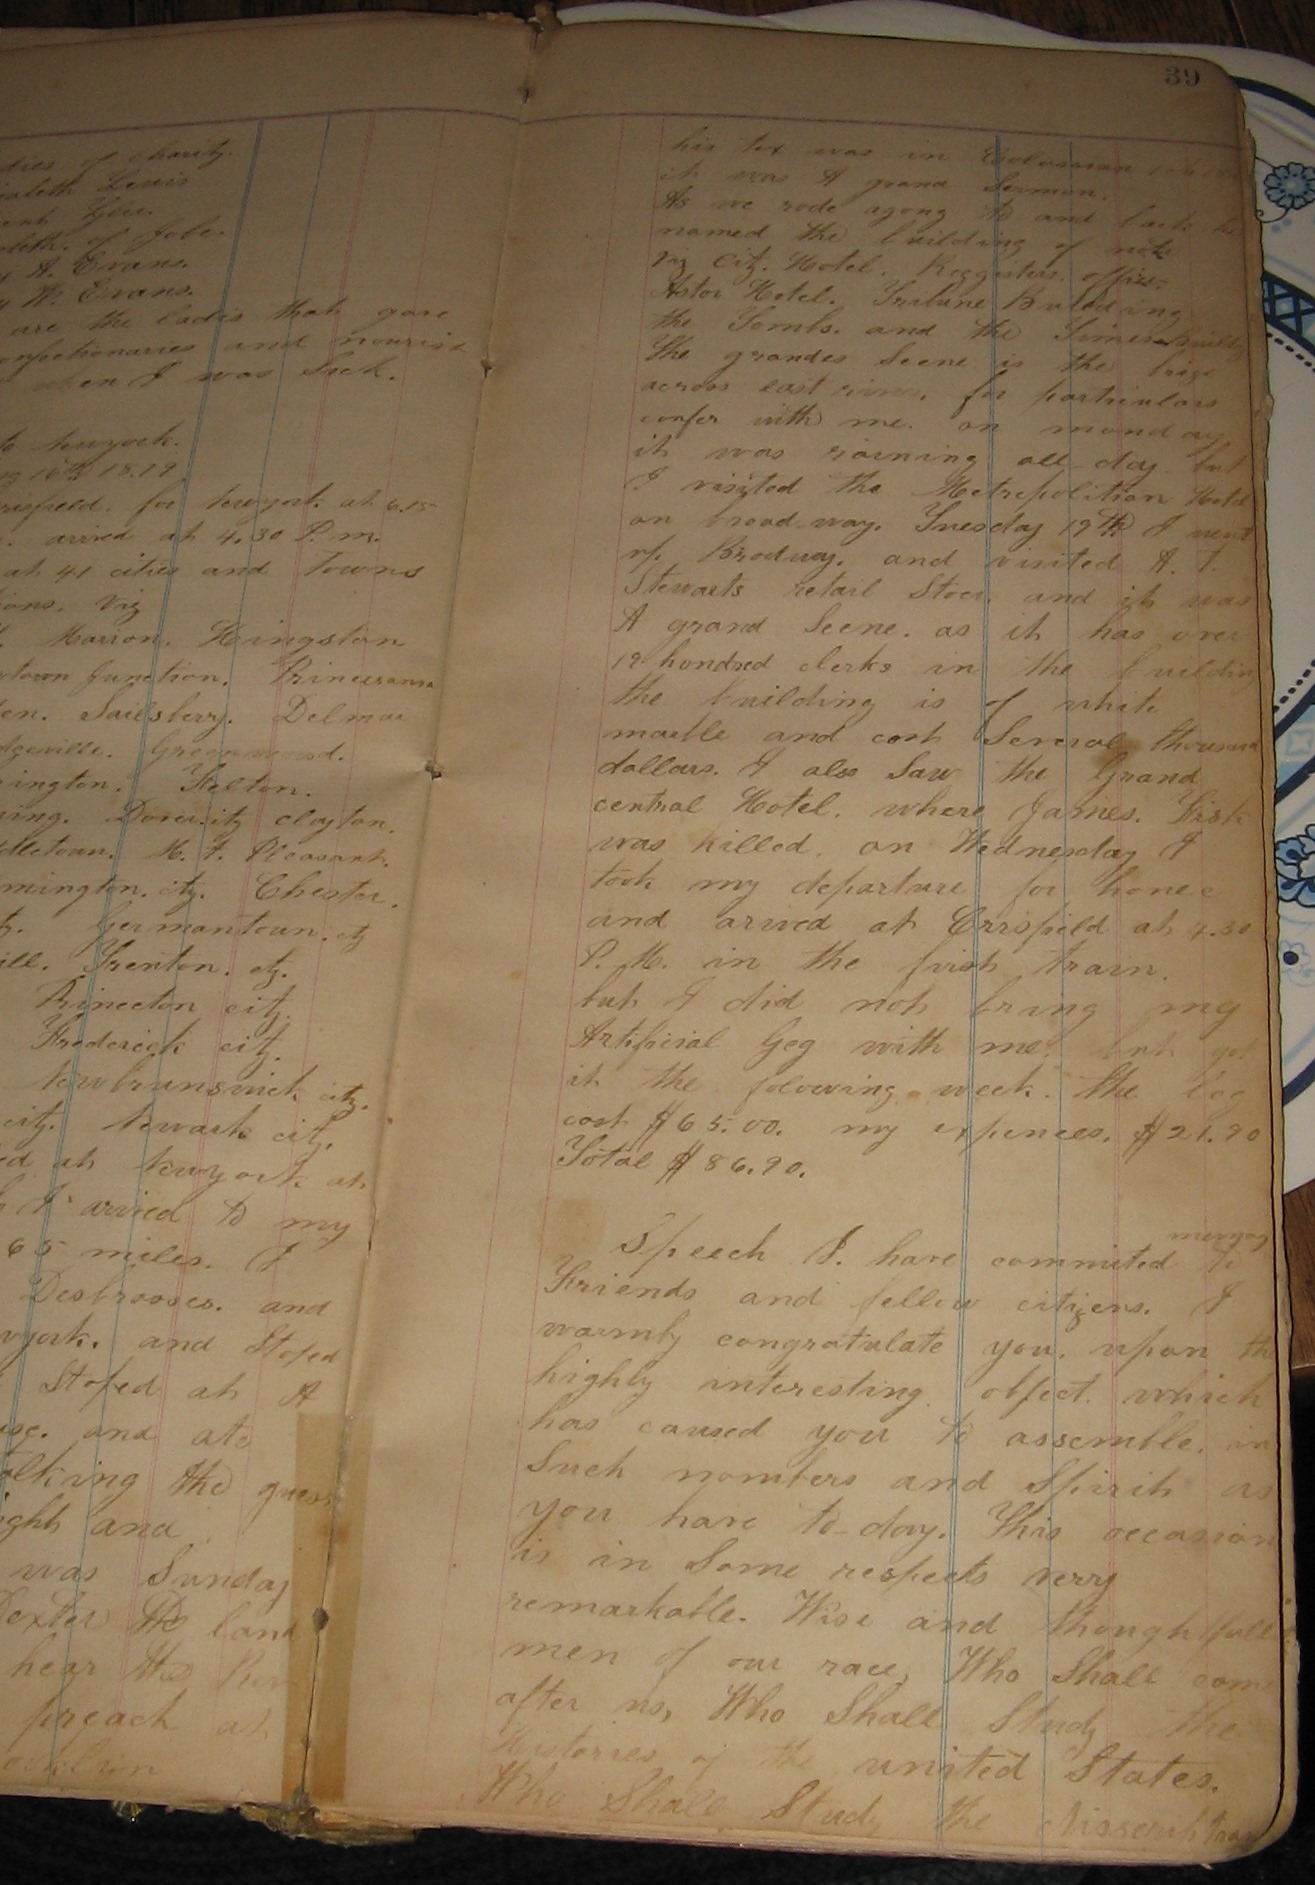 dies of charity.
Lewis
of Jobe.
A. Evans.
W. Evans.
are the ladis that gave
onfectionaries and nourish
when I was Sick.
to newyork.
16th 18.79
risfield. for newyork. at 6.15
arived at 4.30 P. m.
at 41 cities and towns
ions. viz
Marion. Kingston
town Junction. Princesanna
en. Sailsberry. Delmar
dgeville. Greenwood.
rington. Felton.
ning. Dover. city clayton.
dletown. Mt. Pleasant.
mington. city. Chester.
Germantown. city
ill. Trenton. city.
Princeton city.
Frederick city.
Newbrunswick city.
city. Newark city.
ed at newyork at
I arived to my
65 miles. I
Desbrosses. and
wyork. and Stoped
Stoped at A
use. and ate
alking the guess
ight and
was Sunday
Dexter the land
hear the Rev
preach at
ooklin
39
his tex was in Colossian
it was A grand Sermon.
As we rode agong to and back he
named the building of note
viz City. Hotel. Reggisters. offise.
Astor Hotel. Tribune Bulding
the Tombs. and the Times Build
the grandes Scene is the brige
across east river. for particulars
confer with me. on monday
it was raining all-day but
I visited the Metropolition Hotel
on broad-way. Tuesday 19th I went
up. Brodway. and visited A. T.
Stewarts retail Stoer. and it was
A grand Scene. as it has over
19 hondred clerks in the building
the building is of white
marble and cost Several thousand
dollars. I also Saw the Grand
central Hotel. where James. Fisk
was killed. on Wednesday I
took my departure for home
and arived at Crisfield at 4.30
P. M. in the first train.
but I did not bring my
Artificial Geg with me. but got
it the folowing week. the leg
cost $65.00. my expences. $21.90
Total $86.90.
Speech I. have commited to
Friends and fellow citizens. I
warmly congratulate you. upon the
highly interesting. object. which
has caused you to assemble. in
Such nombers and Spirit as
you have to-day. This occasion
is in Some respects verry
remarkable. Wise and thoughtfull
men of our race, Who Shall come
after us, Who Shall Study the
Histories of the united States.
Who Shall Study the